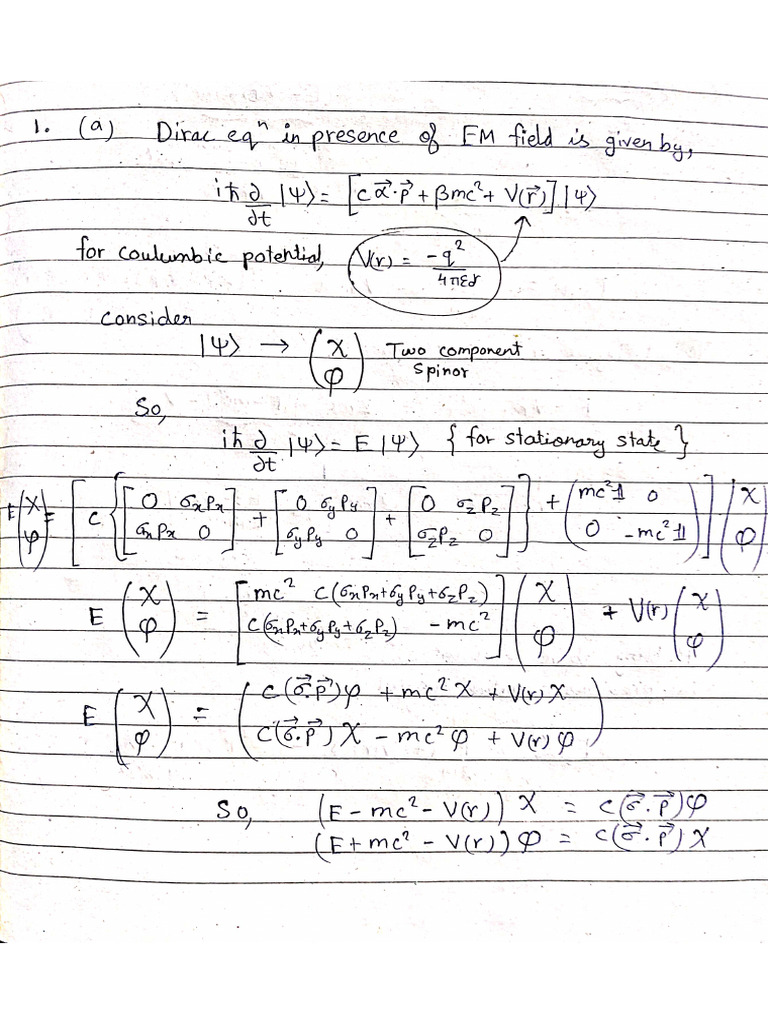 1. (a) Dirac eqⁿ in presence of EM field is given by,
iħ ∂/∂t |ψ⟩ = [c α⃗·p⃗ + βmc² + V(r⃗)] |ψ⟩
for coulumbic potential, V(r) = -q²/4πεr
consider
|ψ⟩ → (χ φ) Two component
spinor
So,
iħ ∂/∂t |ψ⟩ = E |ψ⟩ { for stationary state }
E (χ φ) = [ c { [0 σₓPₓ; σₓPₓ 0] + [0 σ_yP_y; σ_yP_y 0] + [0 σ_zP_z; σ_zP_z 0] } + (mc²𝟙 0; 0 -mc²𝟙) ] (χ φ)
E (χ φ) = [mc² c(σₓPₓ+σ_yP_y+σ_zP_z); c(σₓPₓ+σ_yP_y+σ_zP_z) -mc²] (χ φ) + V(r) (χ φ)
E (χ φ) = (c(σ⃗·p⃗)φ + mc²χ + V(r)χ; c(σ⃗·p⃗)χ - mc²φ + V(r)φ)
So, (E - mc² - V(r)) χ = c(σ⃗·p⃗)φ
(E + mc² - V(r)) φ = c(σ⃗·p⃗)χ